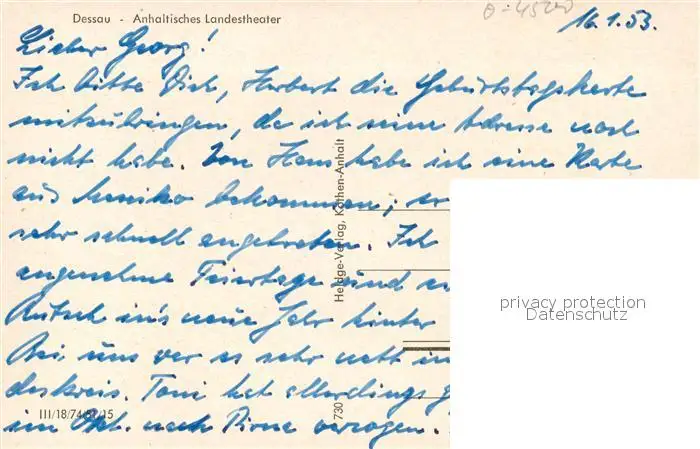 Dessau - Anhaltisches Landestheater
16.1.53.
Lieber Georg!
Ich bitte Dich, Herbert die Geburtstagskarte
mitzubringen, da ich seine Adresse noch
nicht habe. Von Hans habe ich eine Karte
aus bekommen; er
sehr schnell angetreten. Ich
angenehme Feiertage und
Rutsch in's neue Jahr hinter
Bei uns war es sehr nett im
deskreis. Toni hat allerdings
im Okt. nach Pirna verzogen.
Heldge-Verlag, Köthen-Anhalt
730
III/18/74/51/15
privacy protection
Datenschutz